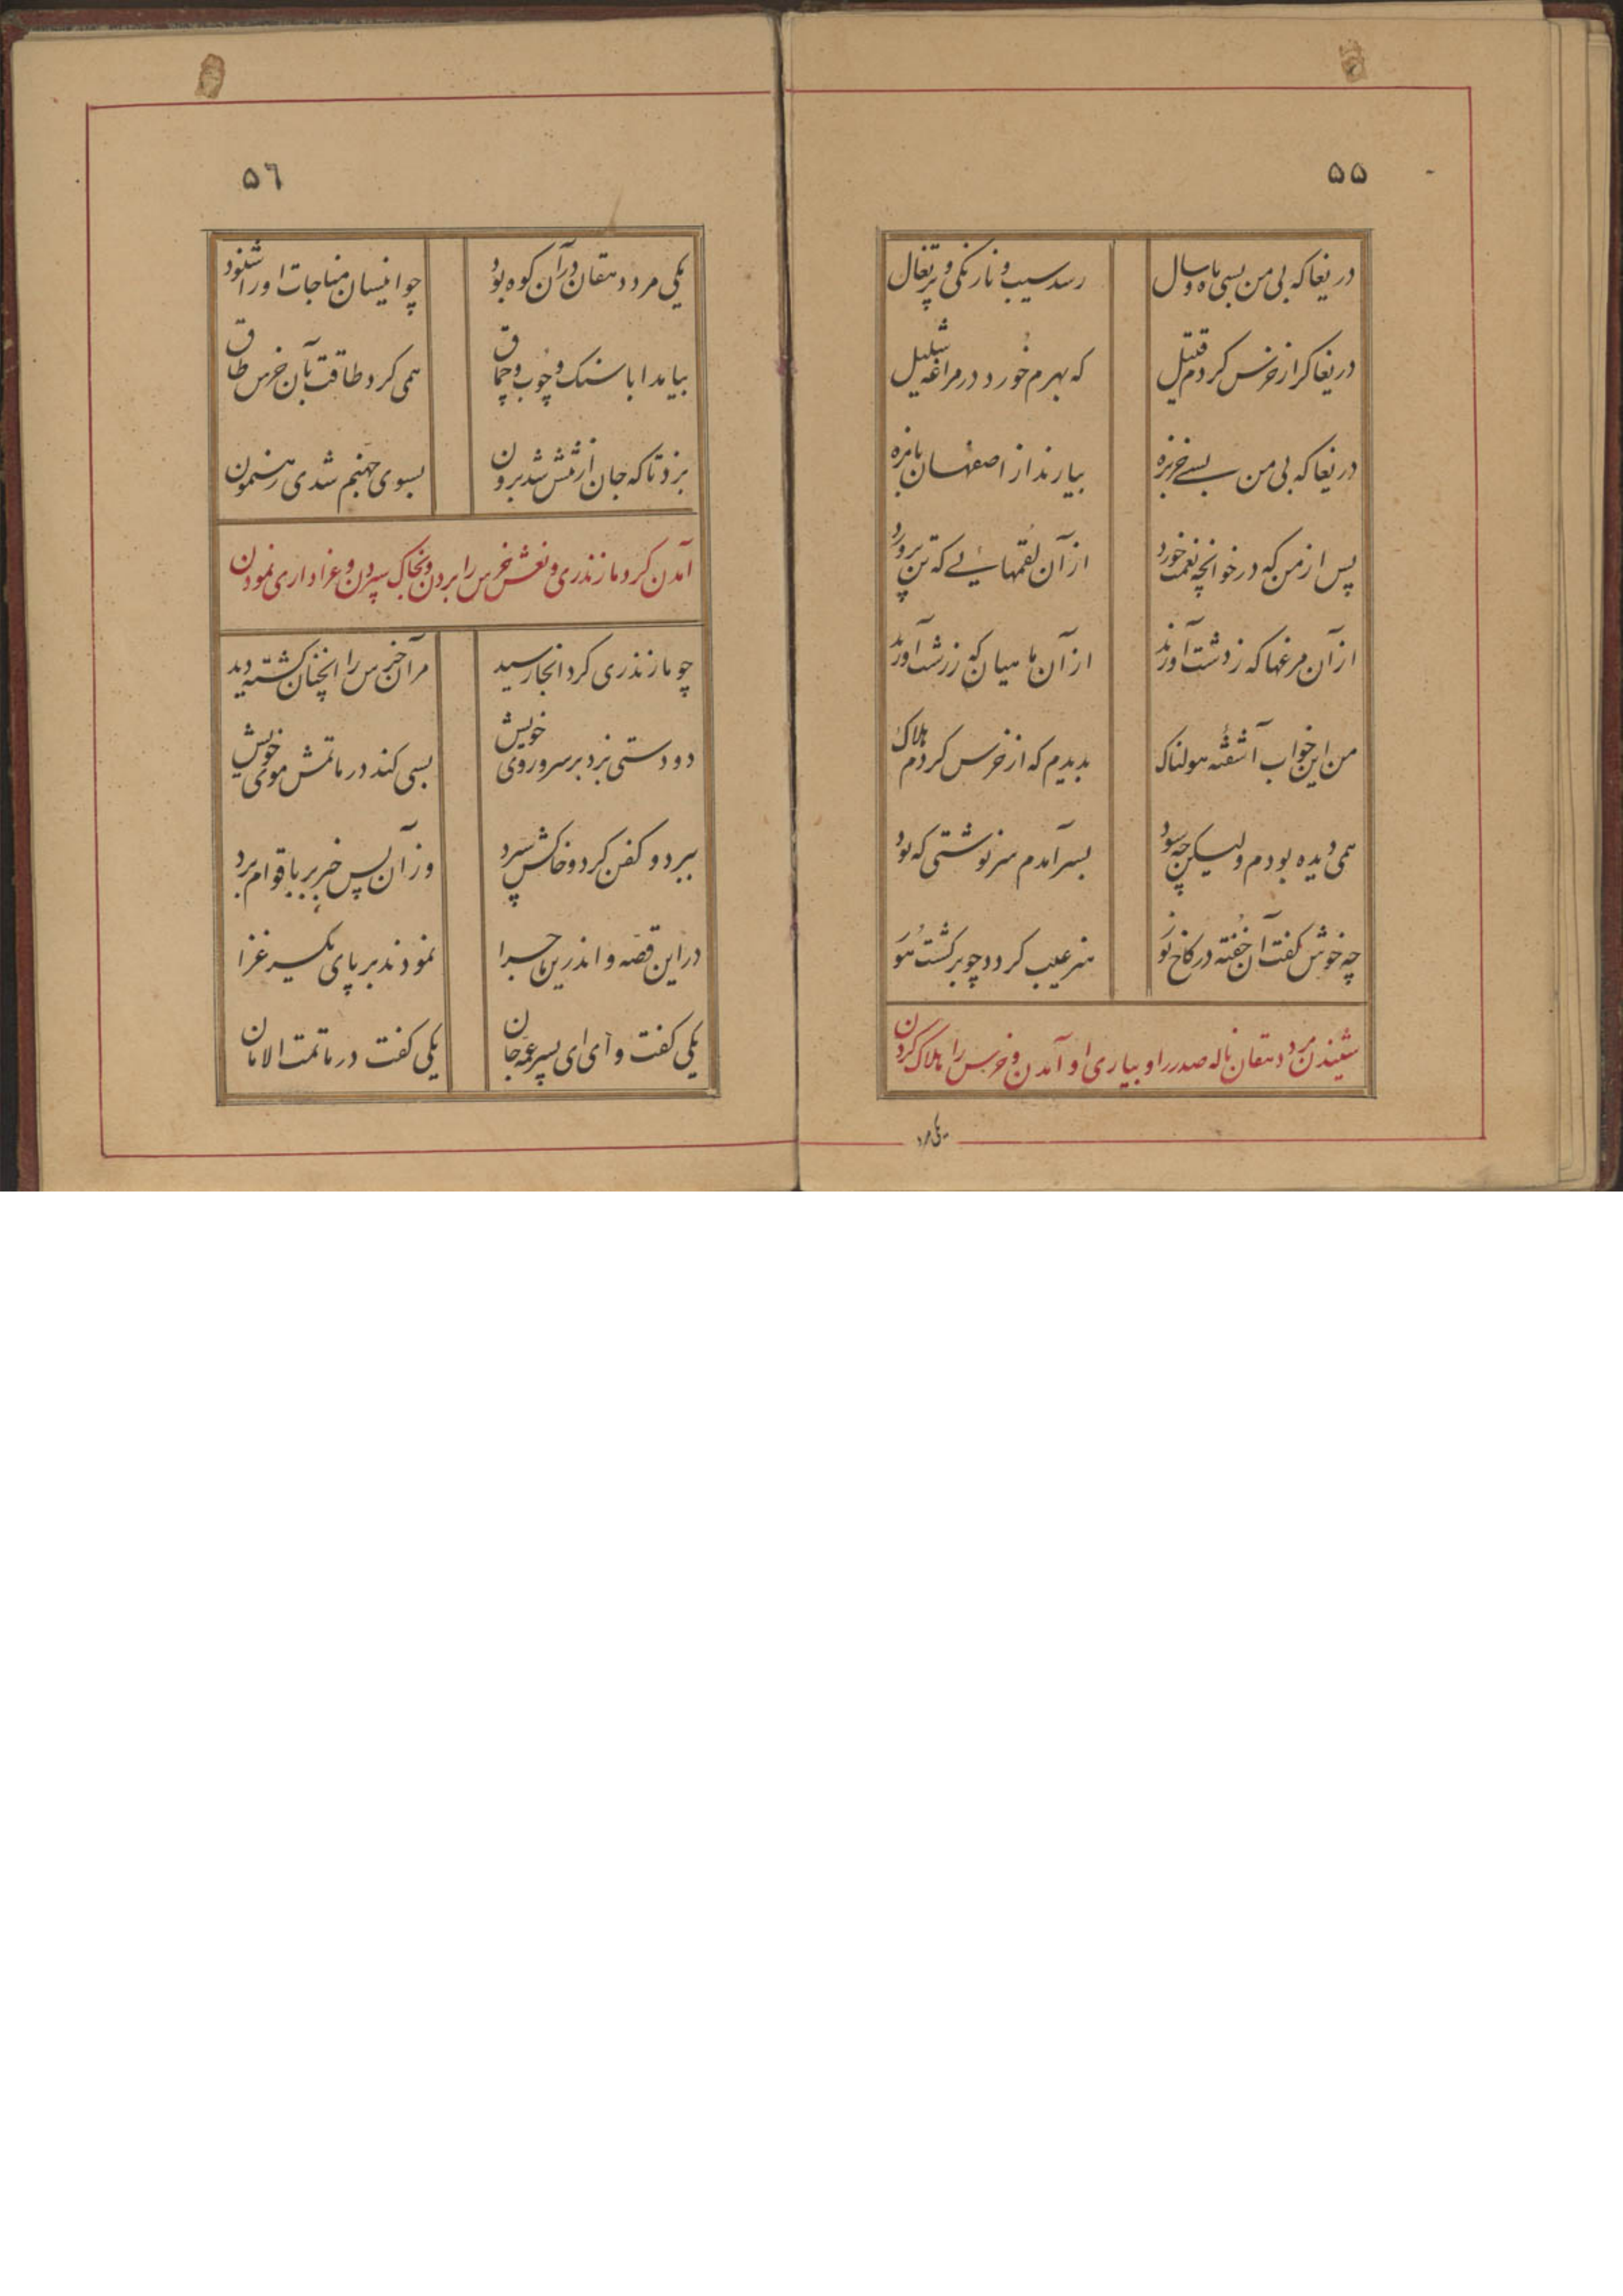 ۵۵
دریغا که بی من بسی ماه و سال رسد سیب و نارنکی و پرتغال
دریغا کر از خرس کردم قتیل که بهرم خورد در مراغه شلیل
دریغا که بی من بسے خربزه بیارند از اصفهان بامزه
پس از من که در خوانچه نعمت خورد از آن لقمهائے که تن پرورد
از آن مرغها که ز دشت آورند از آن ماهیان که ز رشت آورند
من این خواب آشفتهٔ هولناک بدیدم که از خرس کردم هلاک
همی دیده بودم ولیکن چه سود بسر آمدم سرنوشتی که بود
چه خوش کفت آن خفته در کاخ نور هنر عیب کردد چو برکشت هور
شنیدن مرد دهقان ناله صدر را و بیاری او آمدن و خرس را هلاک کردن
یکی مرد
۵٦
یکی مرد دهقان در آن کوه بود چو اینسان مناجات او را شنود
بیامد ابا سنک و چوب و چماق همی کرد طاقت بآن خرس طاق
بزد تا که جان از تنش شد برون بسوی جهنم شدی رهنمون
آمدن کرد مازندری و نعش خرس را بردن و بخاک سپردن و عزاداری نمودن
چو مازندری کرد آنجا رسید مر آن خرس را آنچنان کشته دید
دو دستی بزد بر سر و روی خویش بسی کند در ماتمش موی خویش
ببرد و کفن کرد و خاکش سپرد وز آن پس خبر بر باقوام برد
در این قصّه و اندرین ماجرا نمودند بر پای یکسر عزا
یکی کفت وای ای پسر عمّه جان یکی کفت در ماتمت الامان